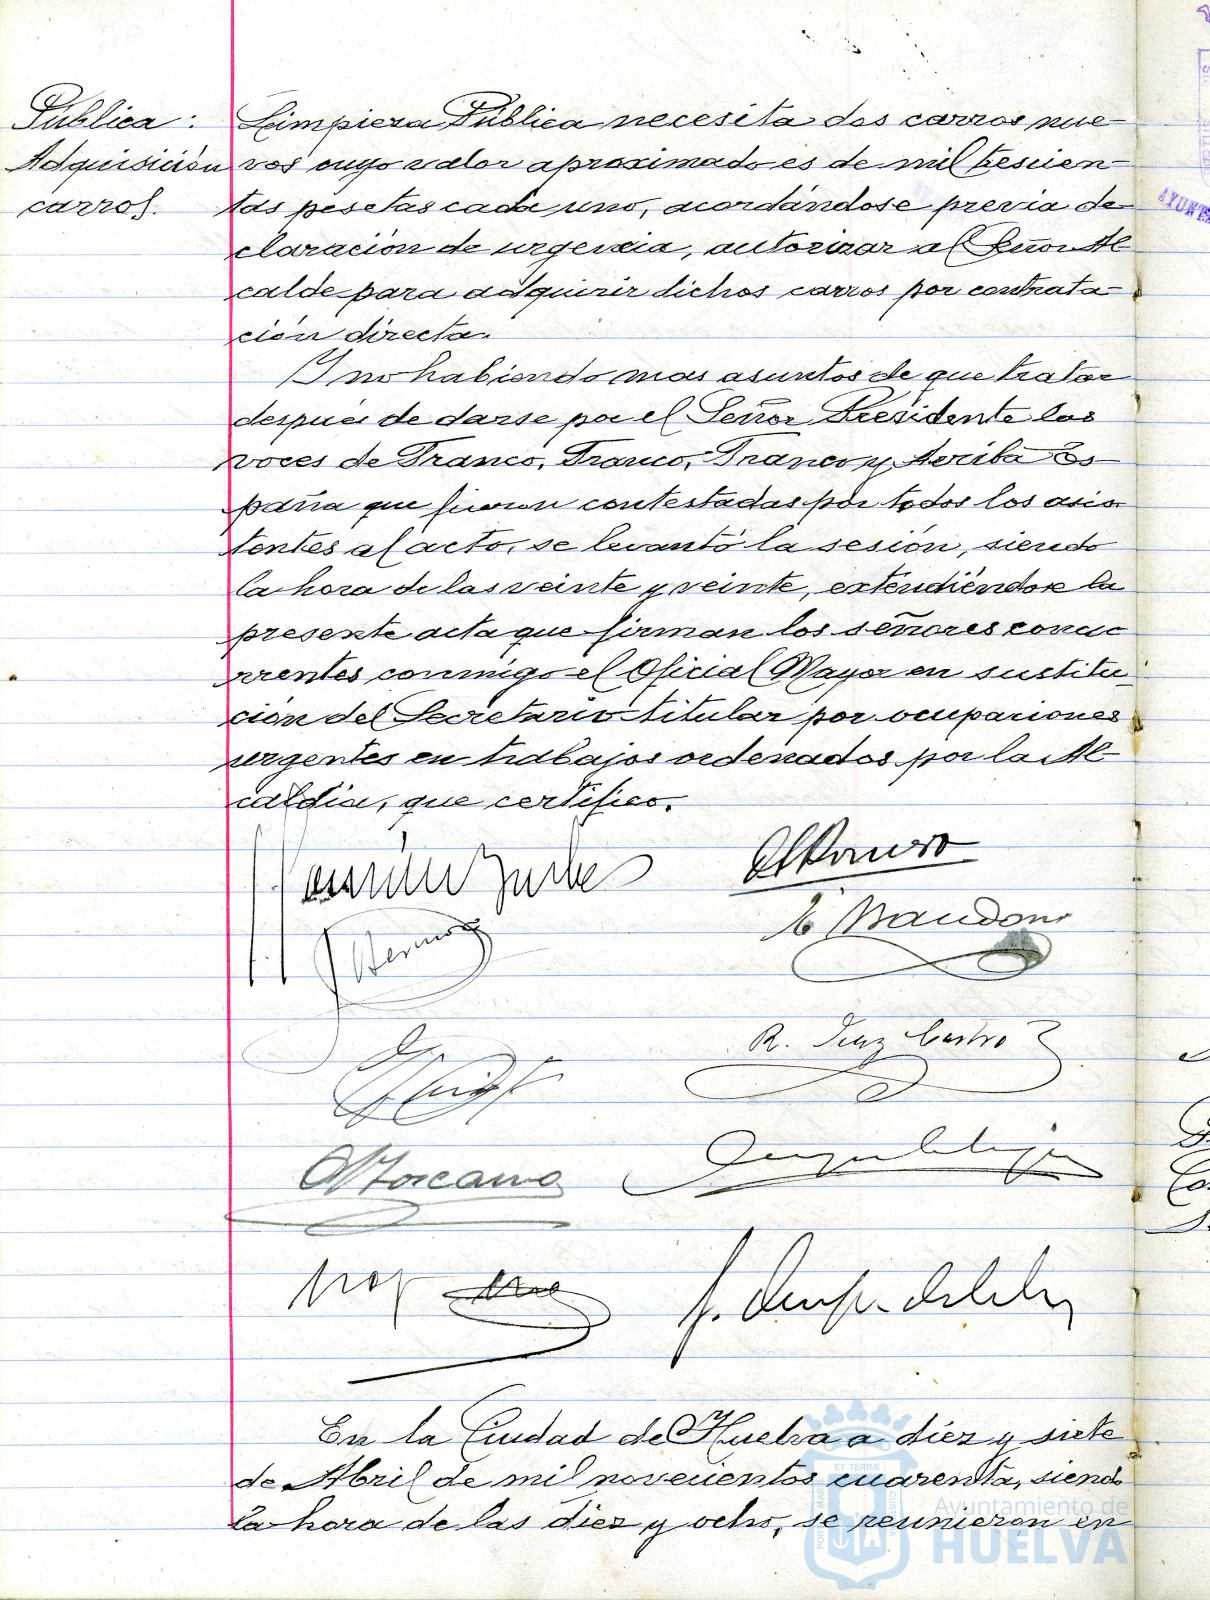 Pública:
Adquisición
carros.
Limpieza Pública necesita dos carros nue-
vos cuyo valor aproximado es de mil tescien-
tas pesetas cada uno, acordándose previa de-
claración de urgencia, autorizar al Señor Al
calde para adquirir dichos carros por contrata-
ción directa.
Y no habiendo mas asuntos de que tratar
después de darse por el Señor Presidente las
voces de Franco, Franco, Franco y Arriba Es-
paña que fueron contestadas por todos los asis-
tentes al acto, se levantó la sesión, siendo
la hora de las veinte y veinte, extendiéndose la
presente acta que firman los señores concu-
rrentes conmigo el Oficial Mayor en sustitu-
ción del Secretario titular por ocupaciones
urgentes en trabajos ordenados por la Al-
caldia, que certifico.
R. Diaz Castro
En la Ciudad de Huelva a diez y siete
de Abril de mil novecientos cuarenta, siendo
la hora de las diez y ocho, se reunieron en
Ayuntamiento de
HUELVA